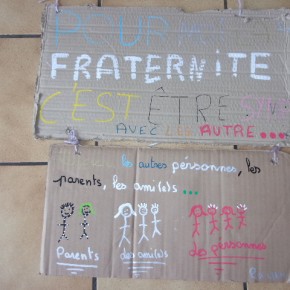 POUR MOI LA
FRATERNITE
C'EST ÊTRE
AVEC LES AUTRE...
les autres pérsonnes, les
parents, les ami(e)s ...
Parents
des ami(e)s
des pérsonnes